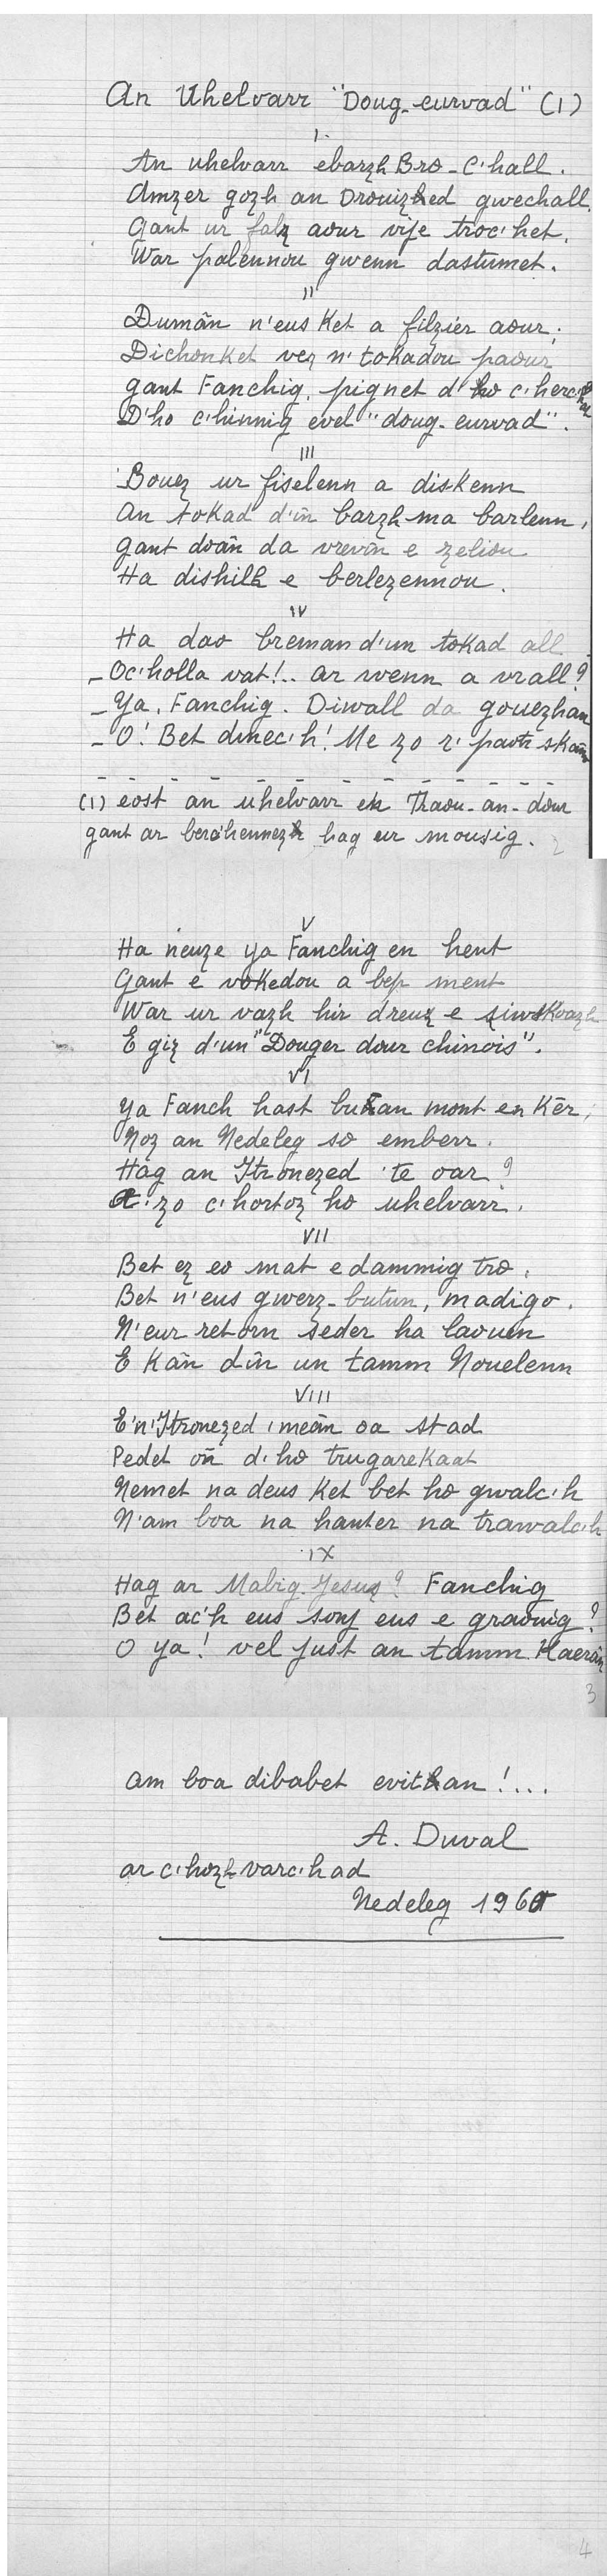 An Uhelvarr "Doug-eurvad" (1)
I.
An uhelvarr ebarzh Bro-C'hall.
Amzer gozh an Drouized gwechall.
Gant ur falz aour vije troc'het.
War palennou gwenn dastumet.
II
Dumañ n'eus ket a filzier aour;
Dichonket vez n' tokadou paour
Gant Fanchig, pignet d'ho c'herc'hat
D'ho c'hinnig evel "doug-eurvad".
III
Bouez ur fiselenn a diskenn
An tokad d'iñ barzh ma barlenn,
Gant doañ da vreviñ e zeliou
Ha dishilh e berlezennou.
IV
Ha dao breman d'un tokad all
- Oc'holla vat!.. Ar wenn a vrall?
- Ya, Fanchig. Diwall da gouezhañ
- O! Bet dinec'h! Me zo r' paotr skañv
(1) eost an uhelvarr en Traou-an-dour
gant ar berc'hennez hag ur mousig.
2
V
Ha neuze ya Fanchig en hent
Gant e vokedou a bep ment
War ur vazh hir dreuz e ziwskoazh
E giz d'un "Douger dour chinois".
VI
Ya Fanch hast buan mont en Kêr;
Noz an Nedeleg so emberr.
Hag an Itronezed 'te oar?
A: zo c'hortoz ho uhelvarr.
VII
Bet ez eo mat e dammig tro,
Bet n'eus gwerz-butun, madigo.
N'eur retorn seder ha laouen
E kân diñ un tamm Nouelenn
VIII
E'n'Itronezed, meañ oa stad
Pedet oñ d'ho trugarekaat
Nemet na deus ket bet ho gwalc'h
N'am boa na hanter na trawalc'h
IX
Hag ar Mabig Jesuz? Fanchig
Bet ac'h eus sonj eus e graouig?
O ya! vel just an tamm kaerañ
3
am boa dibabet evitañ!...
A. Duval
ar c'hozh varc'had
Nedeleg 196
4